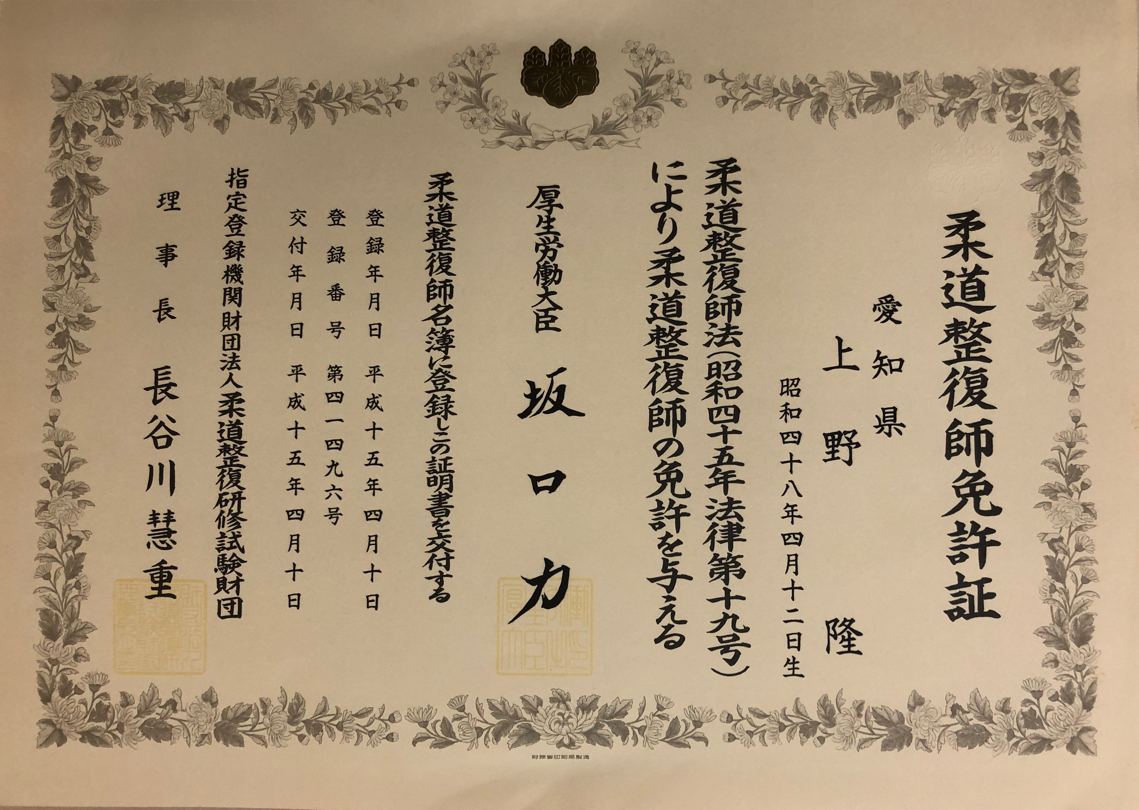 柔道整復師免許証
愛知県
上野 隆
昭和四十八年四月十二日生
柔道整復師法(昭和四十五年法律第十九号)
により柔道整復師の免許を与える
厚生労働大臣 坂口力
柔道整復師名簿に登録しこの証明書を交付する
登録年月日 平成十五年四月十日
登録番号 第四一四九六号
交付年月日 平成十五年四月十日
指定登録機関財団法人柔道整復研修試験財団
理事長 長谷川慧重